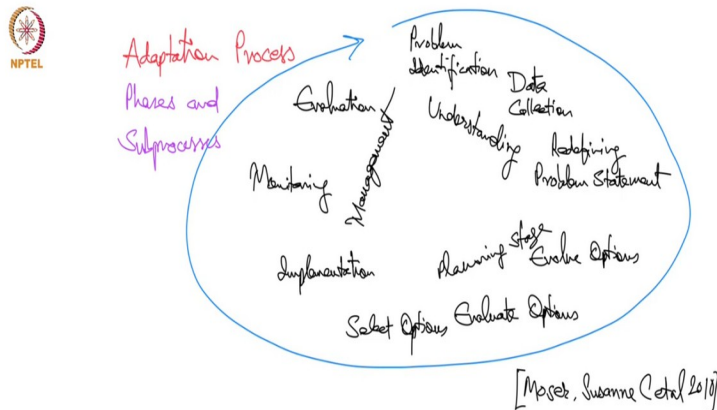 NPTEL
Adaptation Process
Phases and
Subprocesses
Problem
Identification
Data
Collection
Understanding
Redefining
Problem Statement
Planning Stage
Evolve Options
Evaluate Options
Select Options
Implementation
Monitoring
Evaluation
Management
[Moser, Susanne C et al 2010]